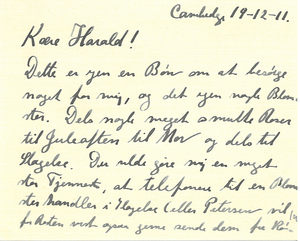 Cambridge 19-12-11.
Kære Harald!
Dette er igen en Bøn om at besørge
noget for mig, og det igen nogle Blom-
ster. Dels nogle meget smukke Roser
til Juleaften til Mor og dels til
Slagelse. Du vilde gøre mig en meget
stor Tjeneste, at telefonere til en Blom-
sterhandler i Slagelse (eller Petersen vil
fra Roten vist ogsaa gerne sende dem fra